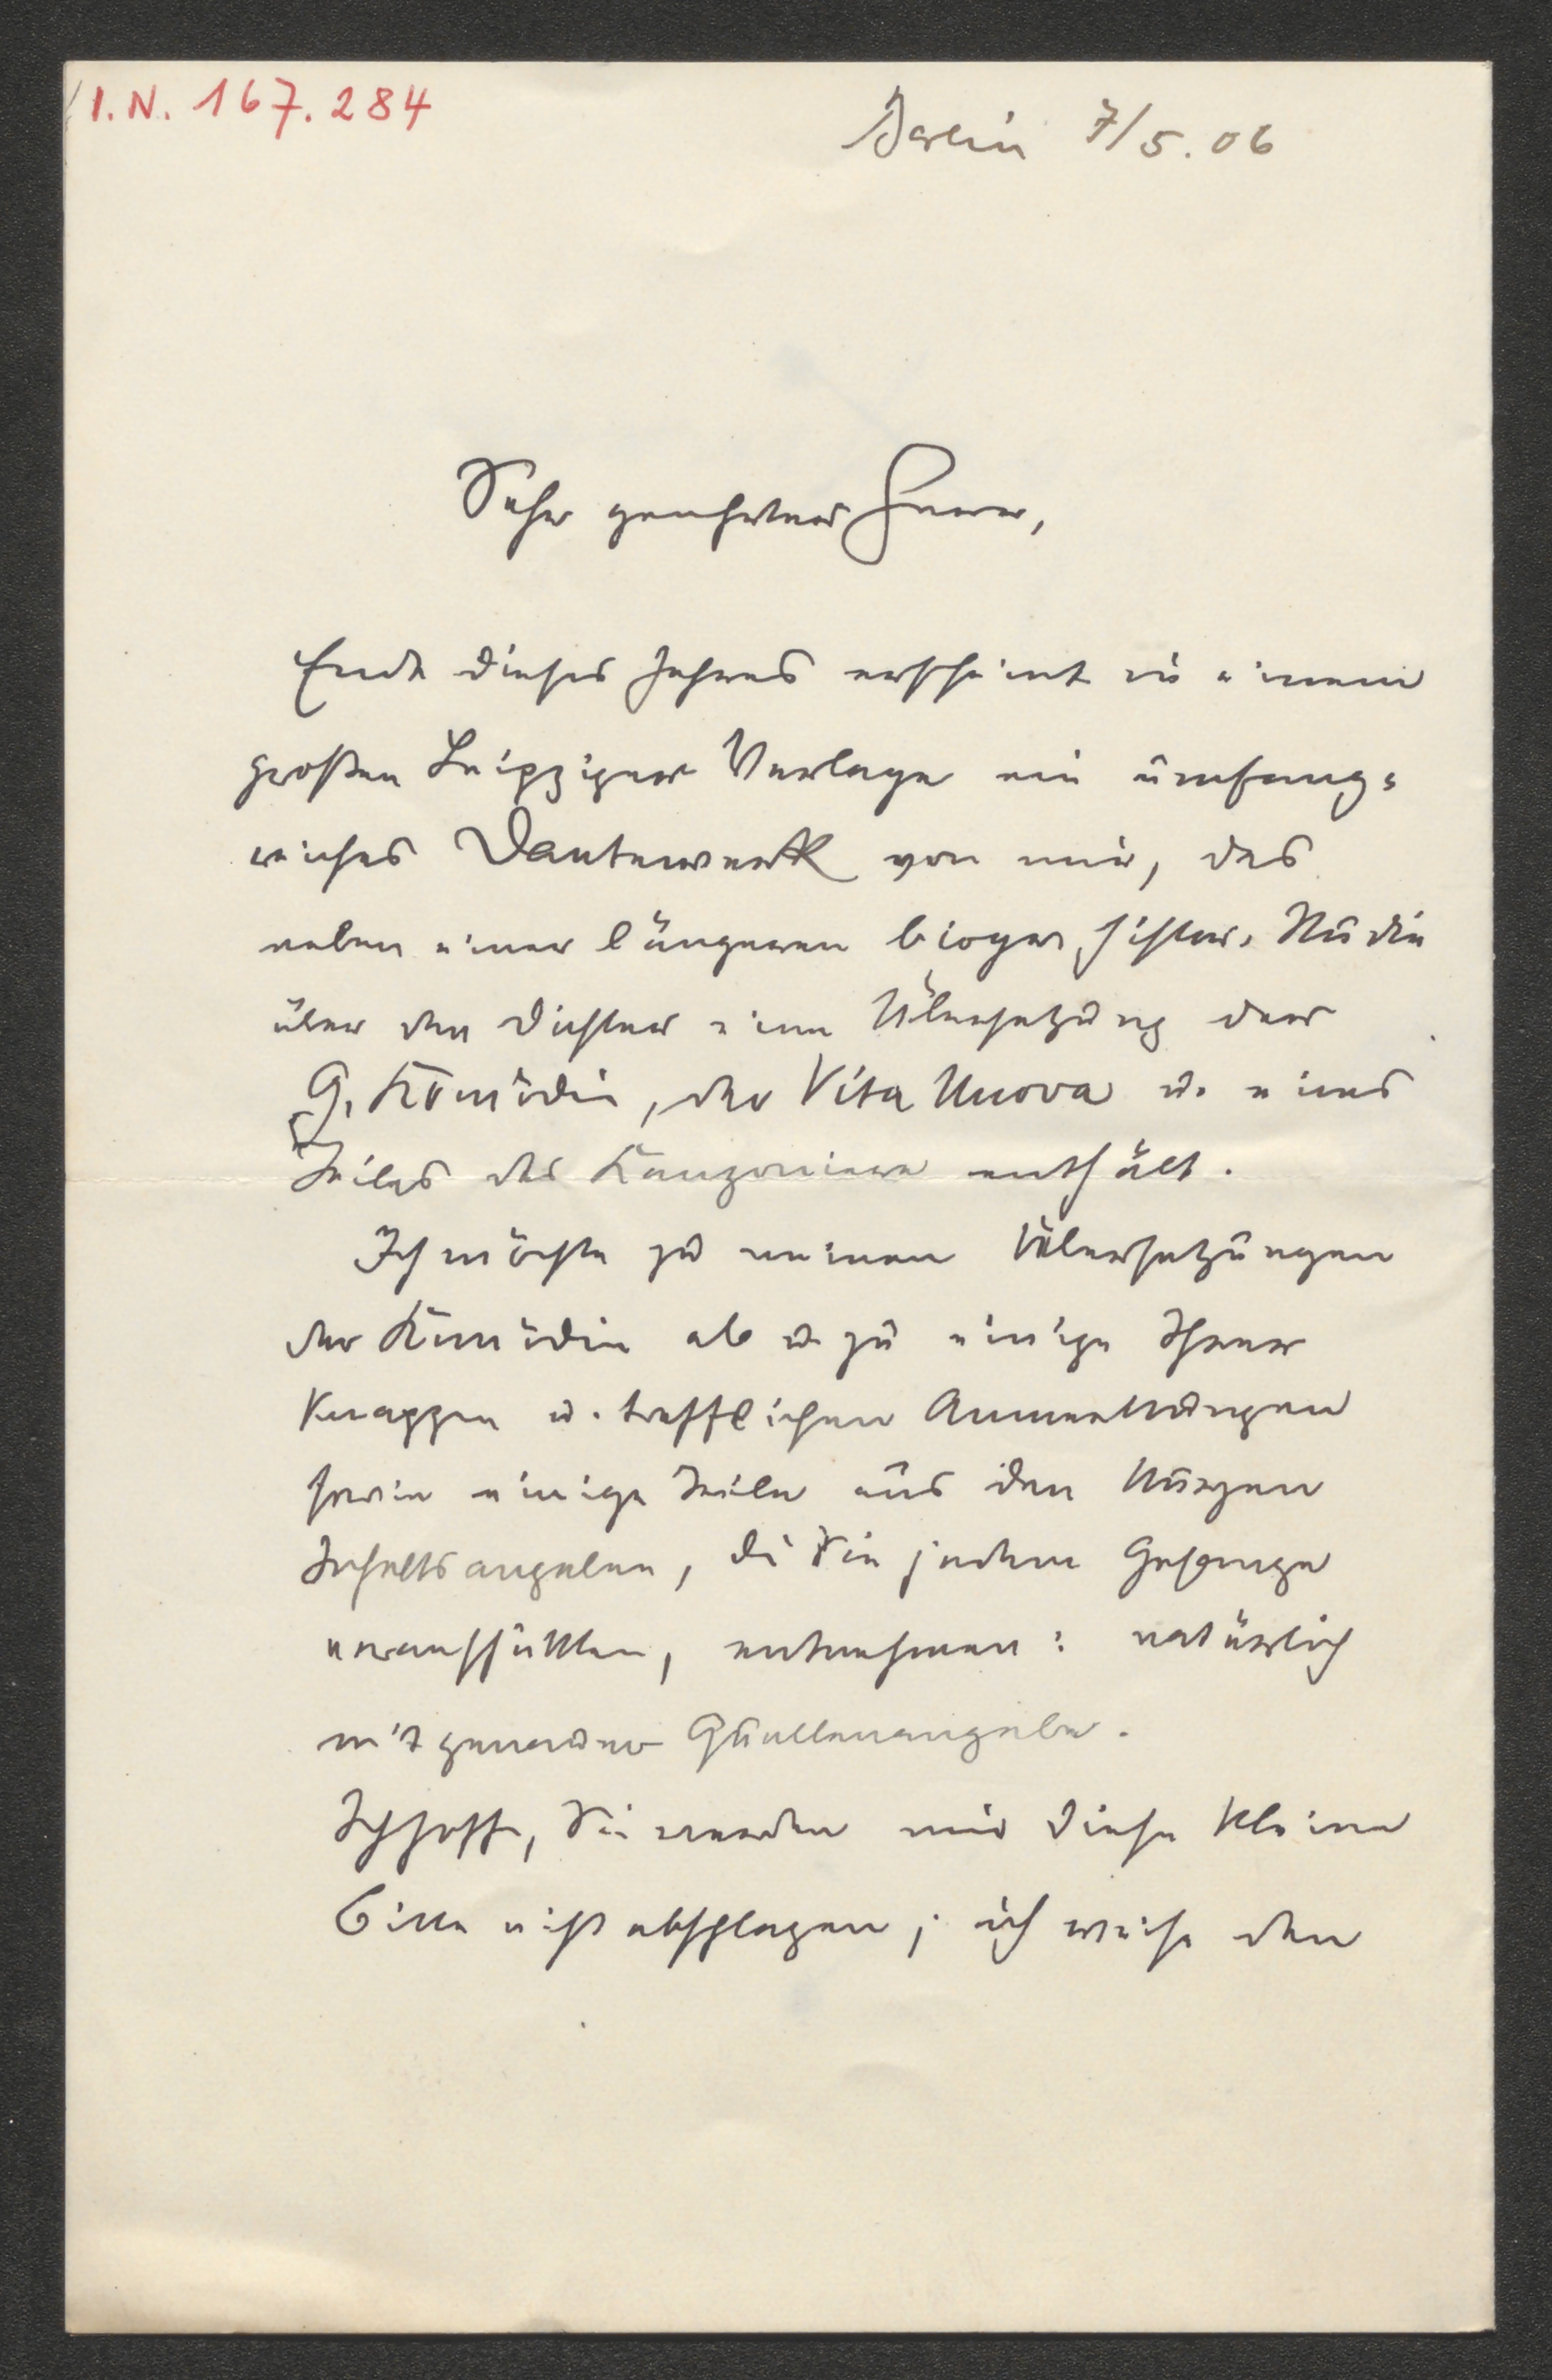 I.N. 167.284
Berlin 7/5.06
Sehr geehrter Herr,
Ende dieses Jahres erscheint in einem
großen Leipziger Verlage ein umfang-
reiches Dantewerk von mir, das
neben einer längeren biogr. histor. Studie
über den Dichter eine Übersetzung der
G. Komödie, der Vita Nuova u. eines
Teiles des Kanzoniere enthält.
Ich möchte zu meinen Übersetzungen
der Komödie ab u. zu einige Ihrer
knappen u. trefflichen Anmerkungen
sowie einige Teile aus den kurzen
Inhaltsangaben, die Sie jedem Gesange
voranschickten, entnehmen: natürlich
mit genauer Quellenangabe.
Ich hoffe, Sie werden mir diese kleine
Bitte nicht abschlagen; ich weise den